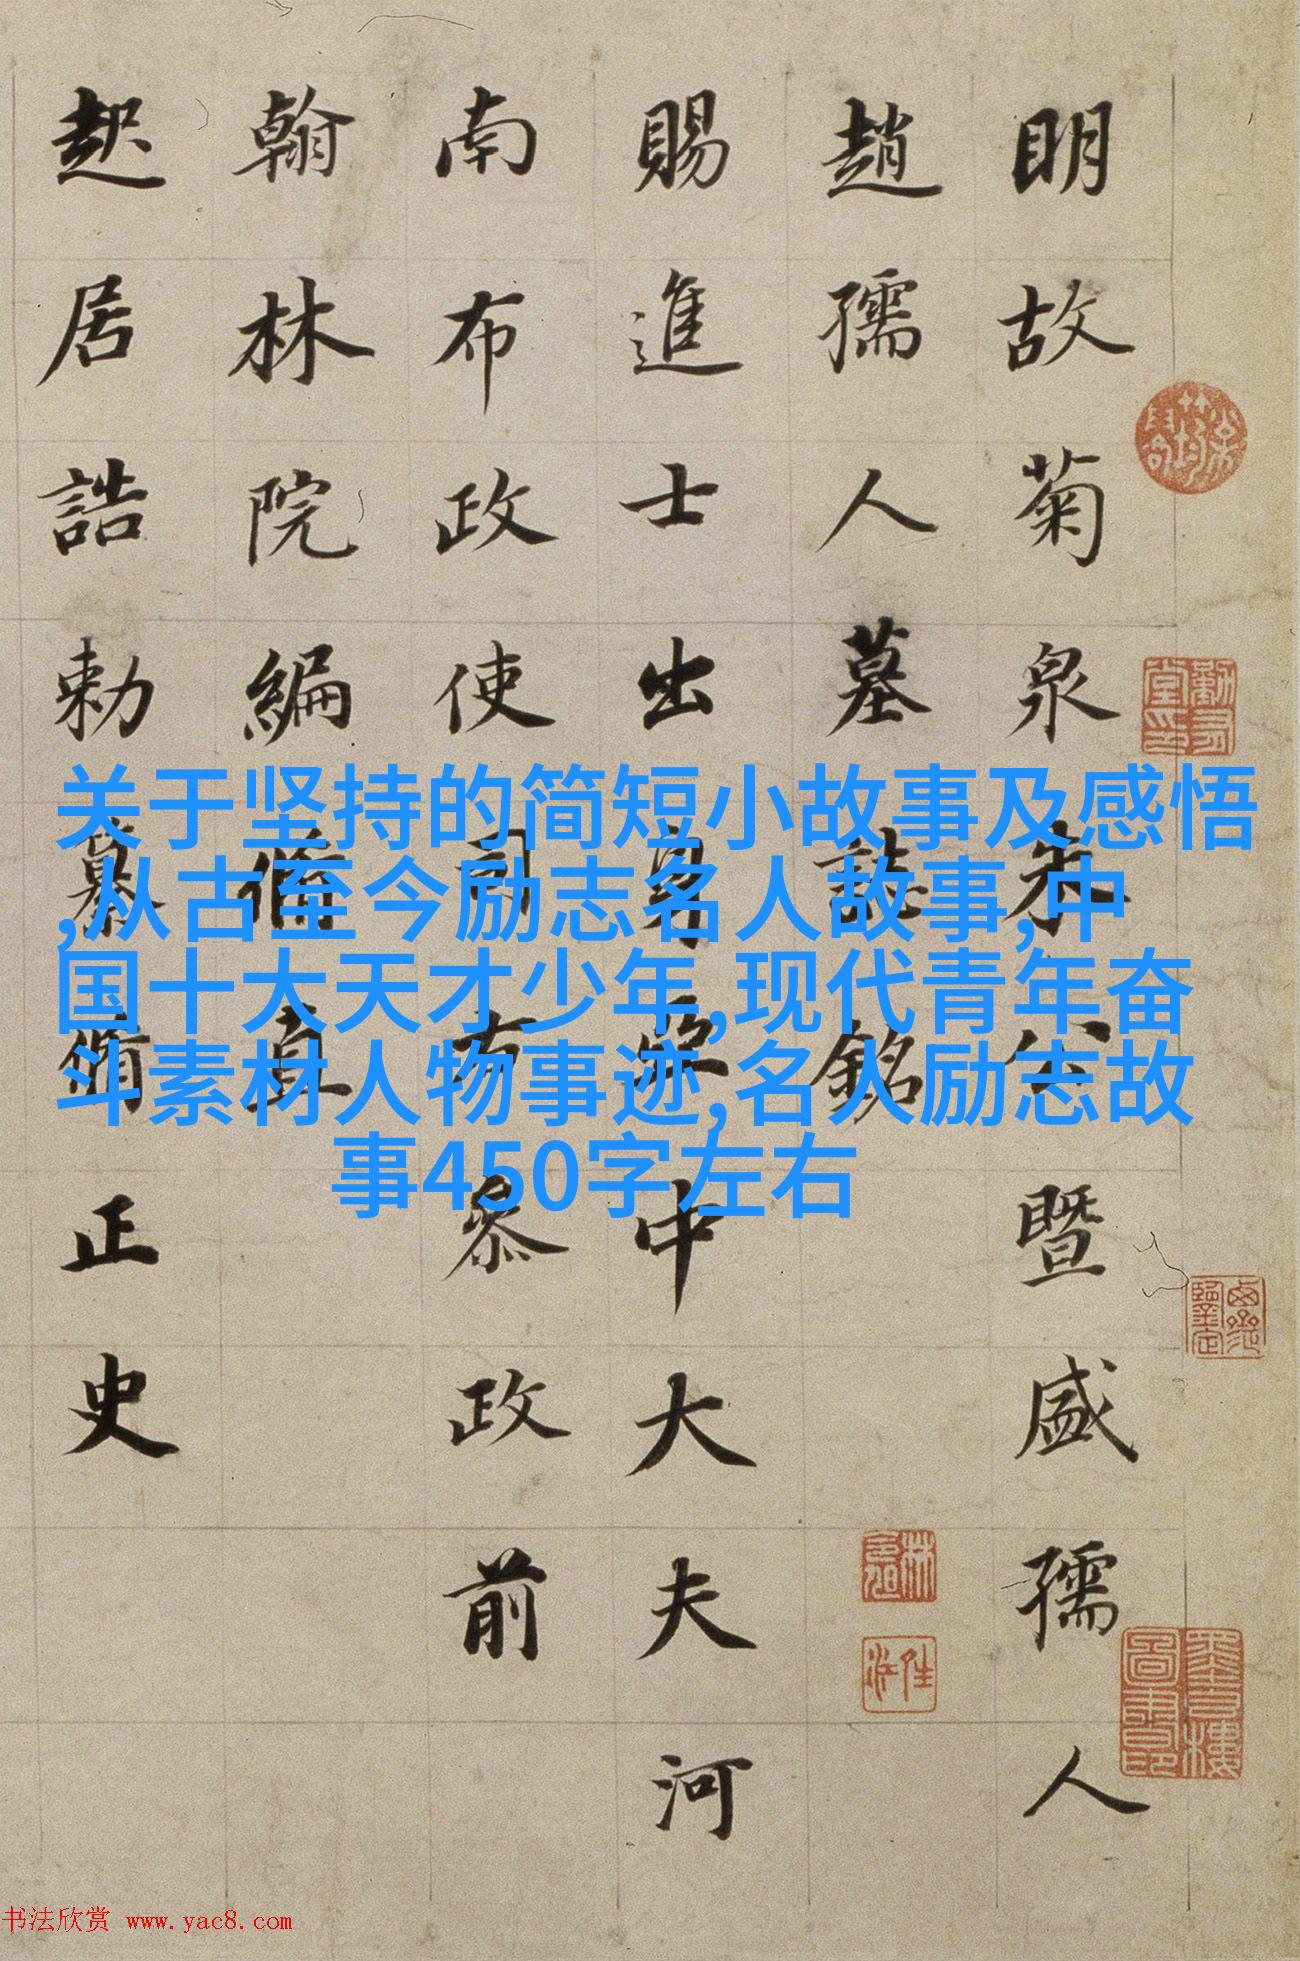 明故菊泉朱公暨盛孺人
趙孺人墓誌銘
賜進士出身中大夫河
南布政使司右叅政前
翰林院編脩直
起居誥勅纂脩正史
关于坚持的简短小故事及感悟
,从古至今励志名人故事,中
国十大天才少年,现代青年奋
斗素材人物事迹,名人励志故
事450字左右
书法欣赏 www.yac8.com